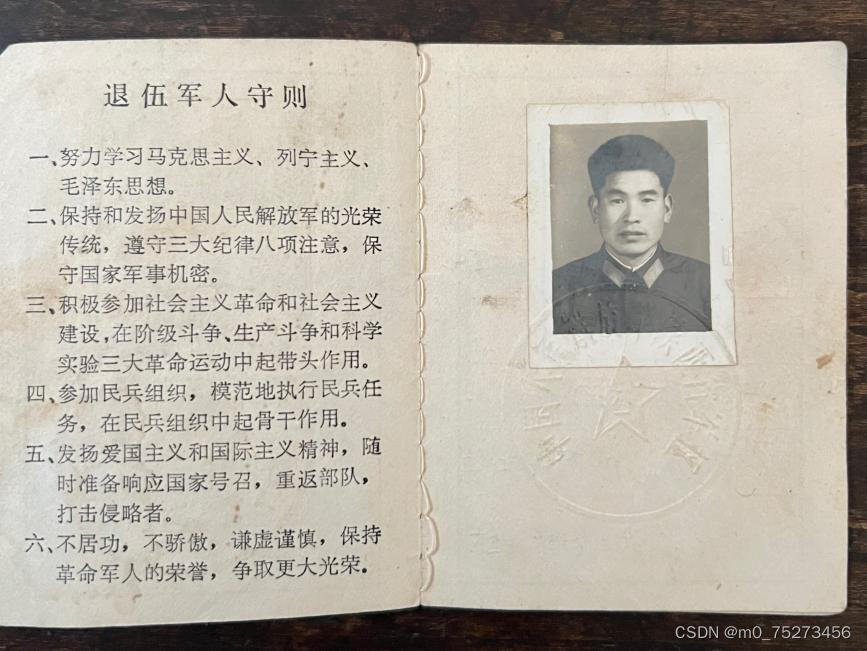 退伍军人守则
一、努力学习马克思主义、列宁主义、
毛泽东思想。
二、保持和发扬中国人民解放军的光荣
传统，遵守三大纪律八项注意，保
守国家军事机密。
三、积极参加社会主义革命和社会主义
建设，在阶级斗争、生产斗争和科学
实验三大革命运动中起带头作用。
四、参加民兵组织，模范地执行民兵任
务，在民兵组织中起骨干作用。
五、发扬爱国主义和国际主义精神，随
时准备响应国家号召，重返部队，
打击侵略者。
六、不居功，不骄傲，谦虚谨慎，保持
革命军人的荣誉，争取更大光荣。
CSDN @m0_75273456